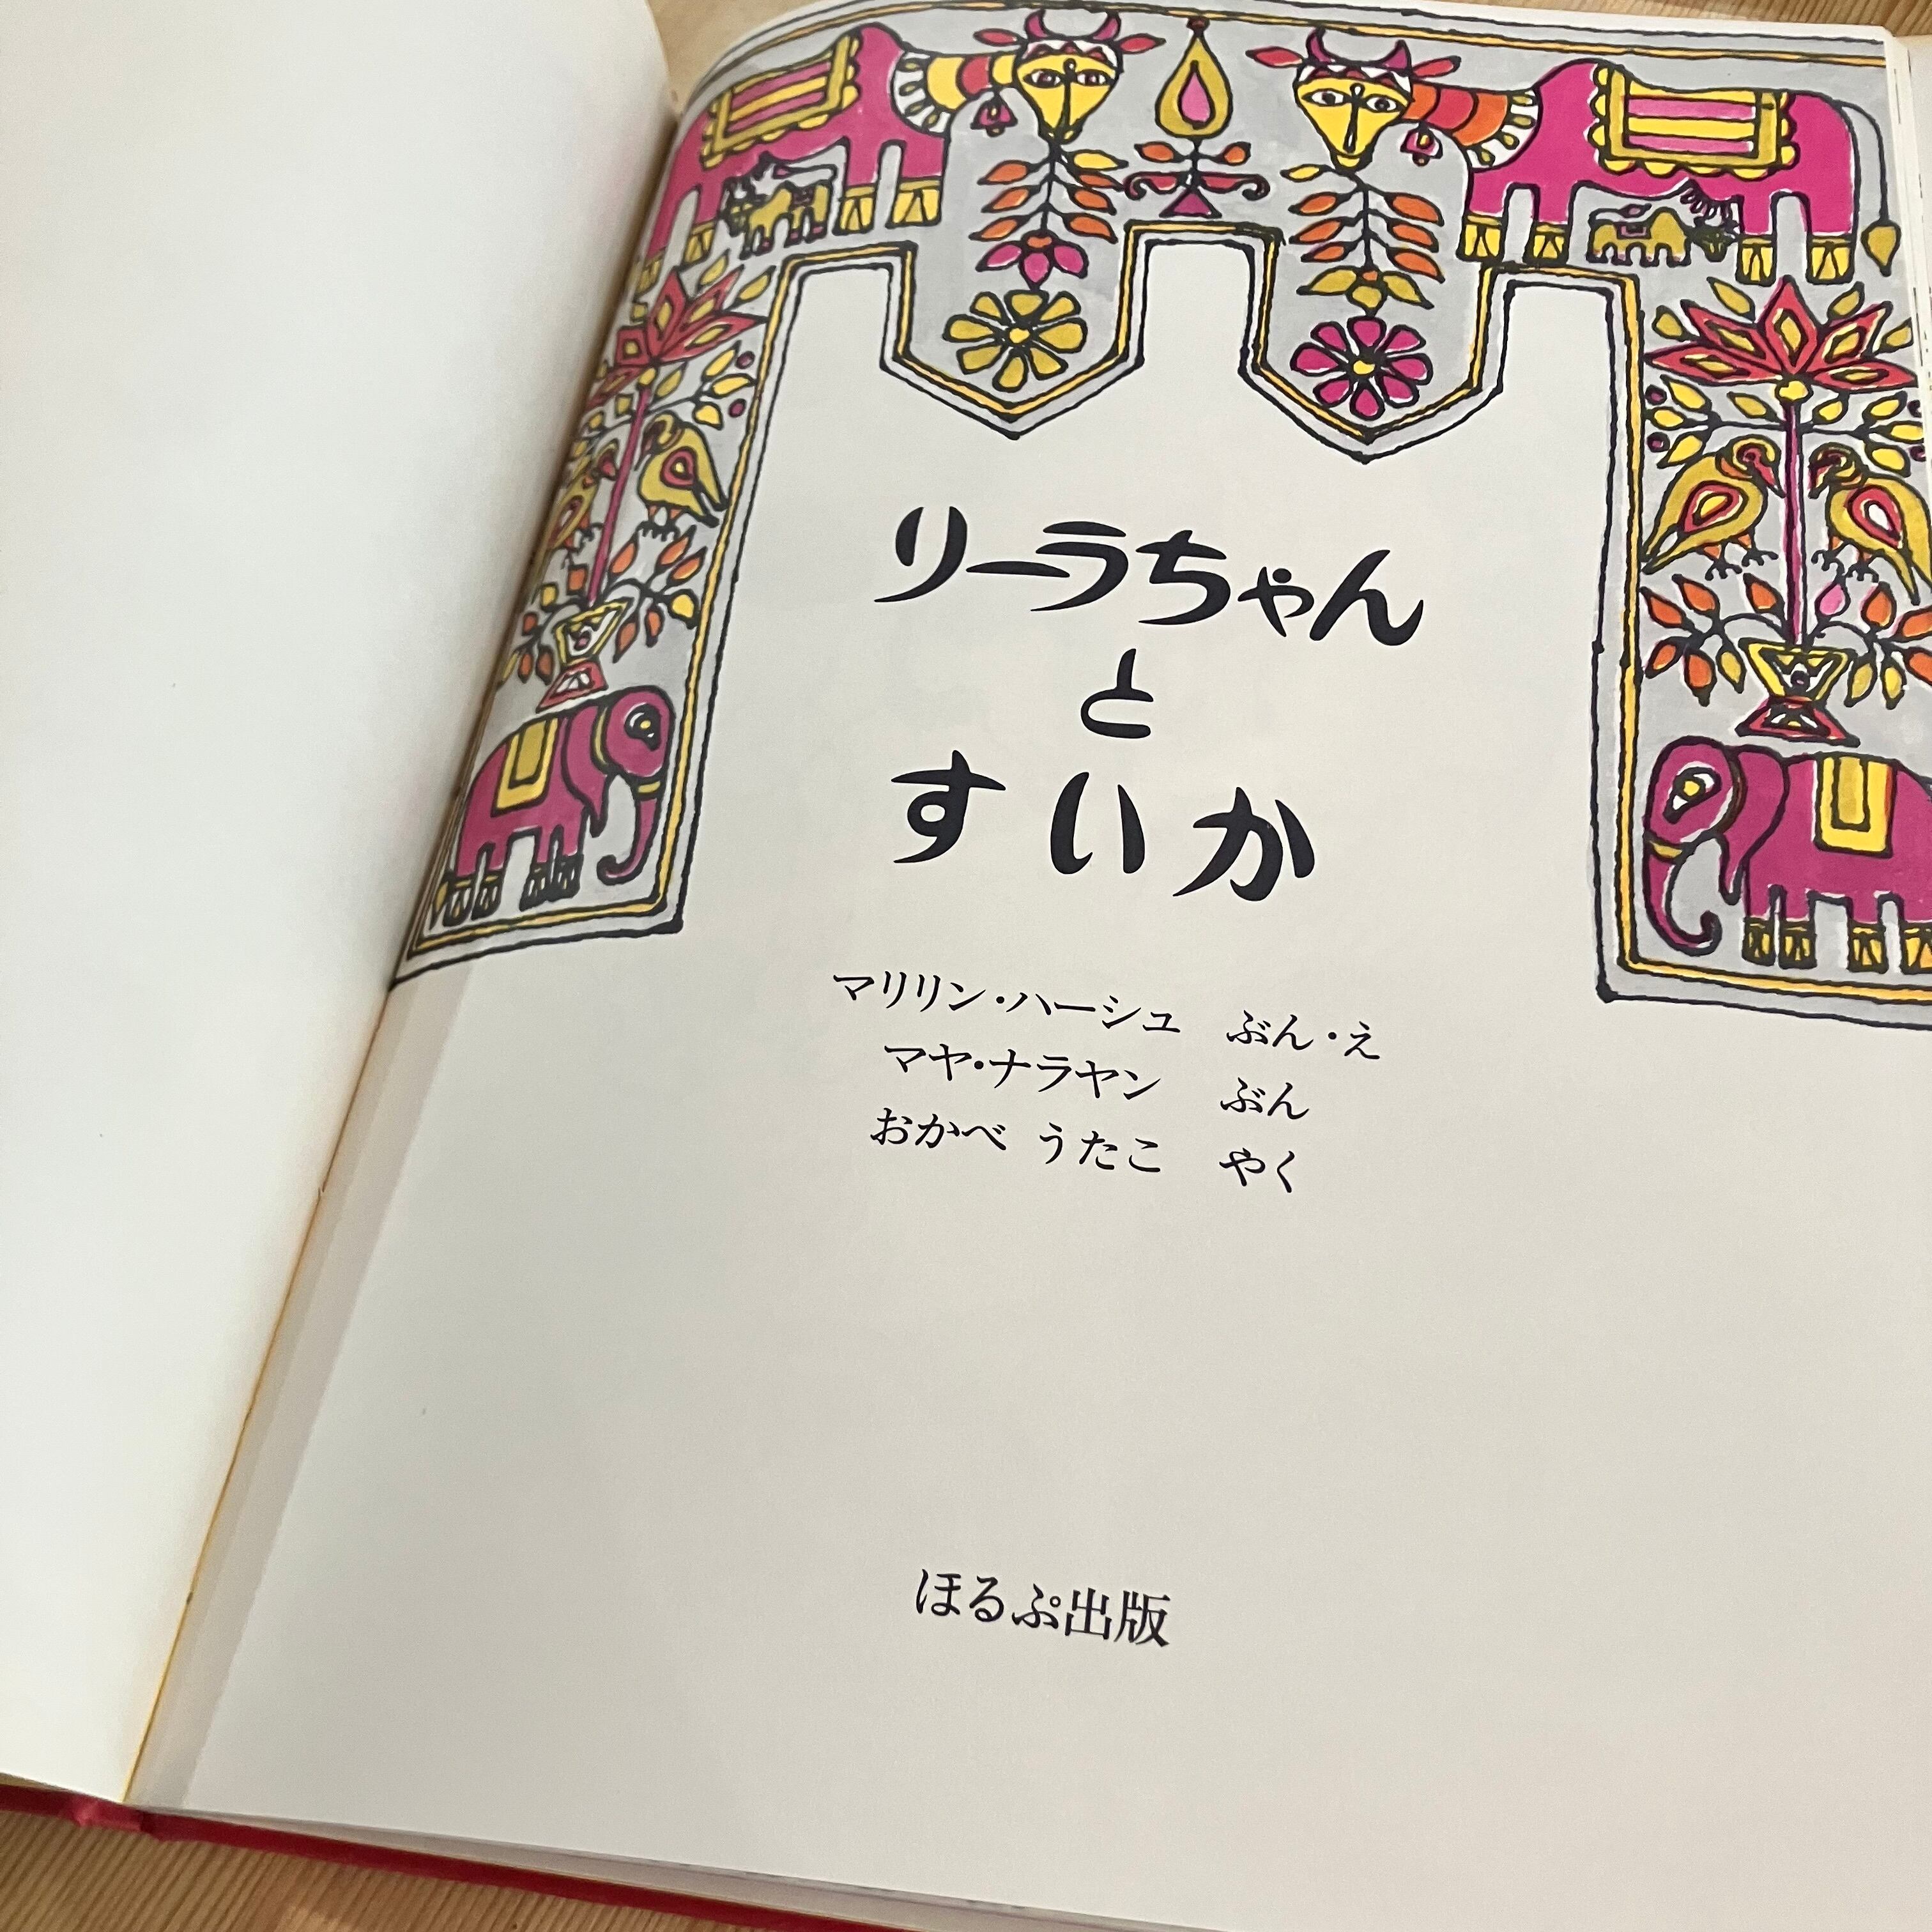 リーラちゃん
と
すいか
マリリン・ハーシュ ぶん・え
マヤ・ナラヤン ぶん
おかべ うたこ やく
ほるぷ出版